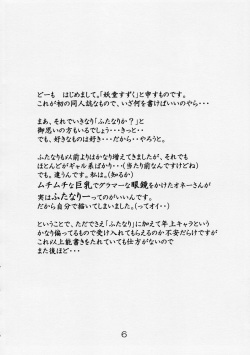 どーも　はじめまして。「妖童すずく」と申すものです。
これが初の同人誌なもので、いざ何を書けばいいのやら・・・
まあ、それでいきなり「ふたなりか？」と
御思いの方もいるでしょう・・・きっと・・
でも、好きだから・・・だから・・やろうと。
ふたなりも以前よりはかなり増えてきましたが、それでも
ほとんどがギャル系ばかり・・・(当たりなんですけどね)
でも。違うんです。私は。(知るか)
ムチムチな巨乳でグラマーな眼鏡をかけたオネーさんが
実はふたなりーってのがいいんです。
だから自分で描いてしまいました。(ってオイ・・)
ということで、ただでさえ「ふたなり」に加えて年上キャラという
かなり偏ってるもので受け入れてもらえるのか不安だらけですが
これ以上能書きをたれていても仕方がないので
また後ほど・・・
6